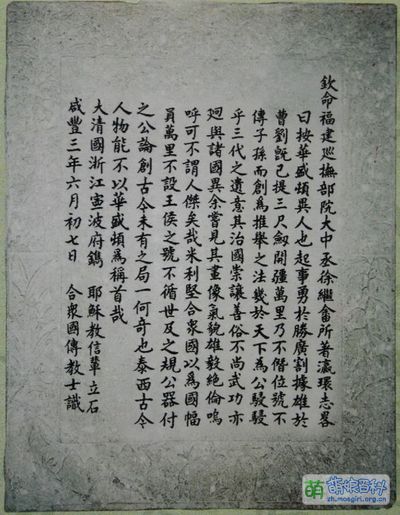 欽命福建巡撫部院大中丞徐繼畬所著瀛環志畧
曰按華盛頓異人也起事勇於勝廣割據雄於
曹劉旣已提三尺劍開疆萬里乃不僭位號不
傳子孫而創爲推舉之法幾於天下爲公駸駸
乎三代之遺意其治國崇讓善俗不尚武功亦
廻與諸國異余嘗見其畫像氣貌雄毅絶倫嗚
呼可不謂人傑矣哉米利堅合衆國以爲國幅
員萬里不設王侯之號不循世及之規公器付
之公論創古今未有之局一何奇也泰西古今
人物能不以華盛頓爲稱首哉
大清國浙江寧波府鐫 耶穌教信輩立石
咸豐三年六月初七日 合衆國傳教士識
萌 萌娘百科
zh.moegirl.org.cn